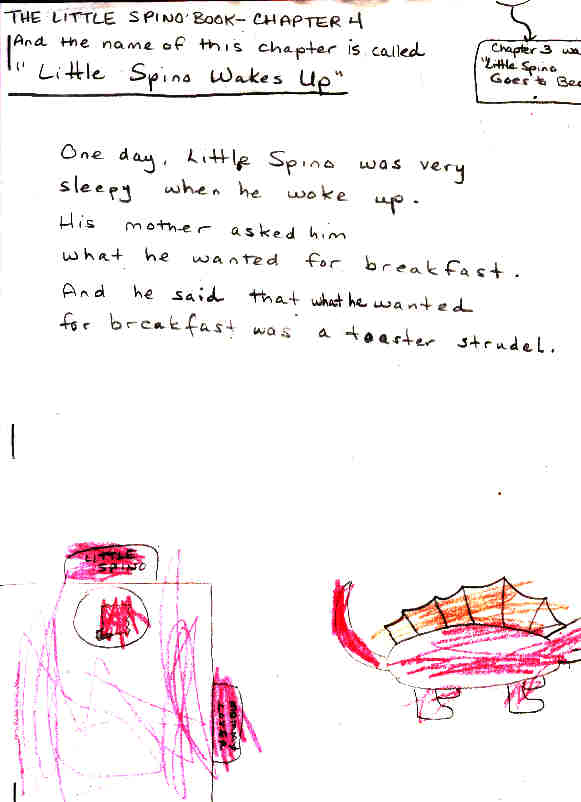 THE LITTLE SPINO BOOK - CHAPTER 4
And the name of this chapter is called
"Little Spino Wakes Up"
Chapter 3 wa
"Little Spino
Goes to Bed
One day, Little Spino was very
sleepy when he woke up.
His mother asked him
what he wanted for breakfast.
And he said that what he wanted
for breakfast was a toaster strudel.
LITTLE
SPINO
MOMMY